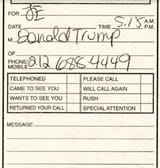 FOR JE
DATE TIME 5:15 A.M. P.M.
M Donald Trump
OF
PHONE/MOBILE 212 688 4449
TELEPHONED PLEASE CALL
CAME TO SEE YOU WILL CALL AGAIN
WANTS TO SEE YOU RUSH
RETURNED YOUR CALL SPECIAL ATTENTION
MESSAGE